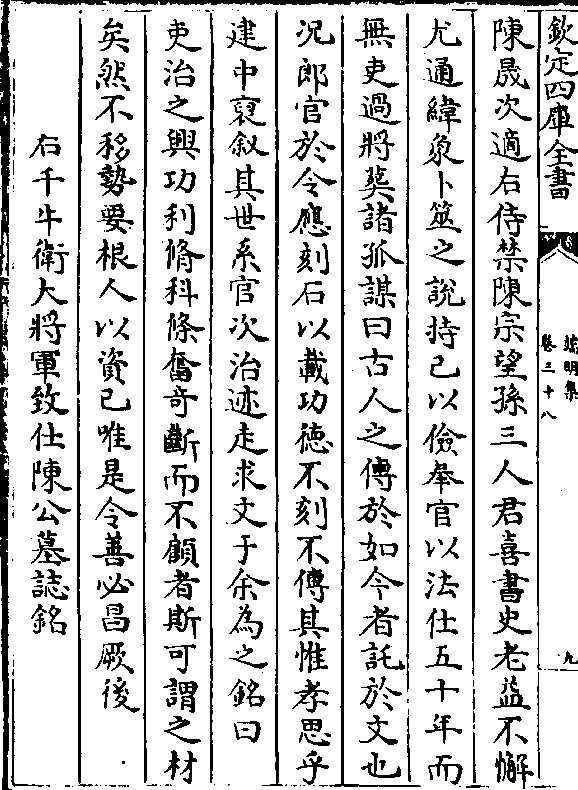 欽定四庫全書
端明集
卷三十八
九
陳晟次適右侍禁陳宗望孫三人君喜書史老益不懈
尤通緯象卜筮之說持己以儉奉官以法仕五十年而
無吏過將葬諸孤謀曰古人之傳於如今者託於文也
況郎官於令應刻石以載功德不刻不傳其惟孝思乎
建中裒叙其世系官次治迹走求文于余為之銘曰
吏治之興功利脩科條奮奇斷而不顧者斯可謂之材
矣然不移勢要根人以資已唯是令善必昌厥後
右千牛衛大將軍致仕陳公墓誌銘